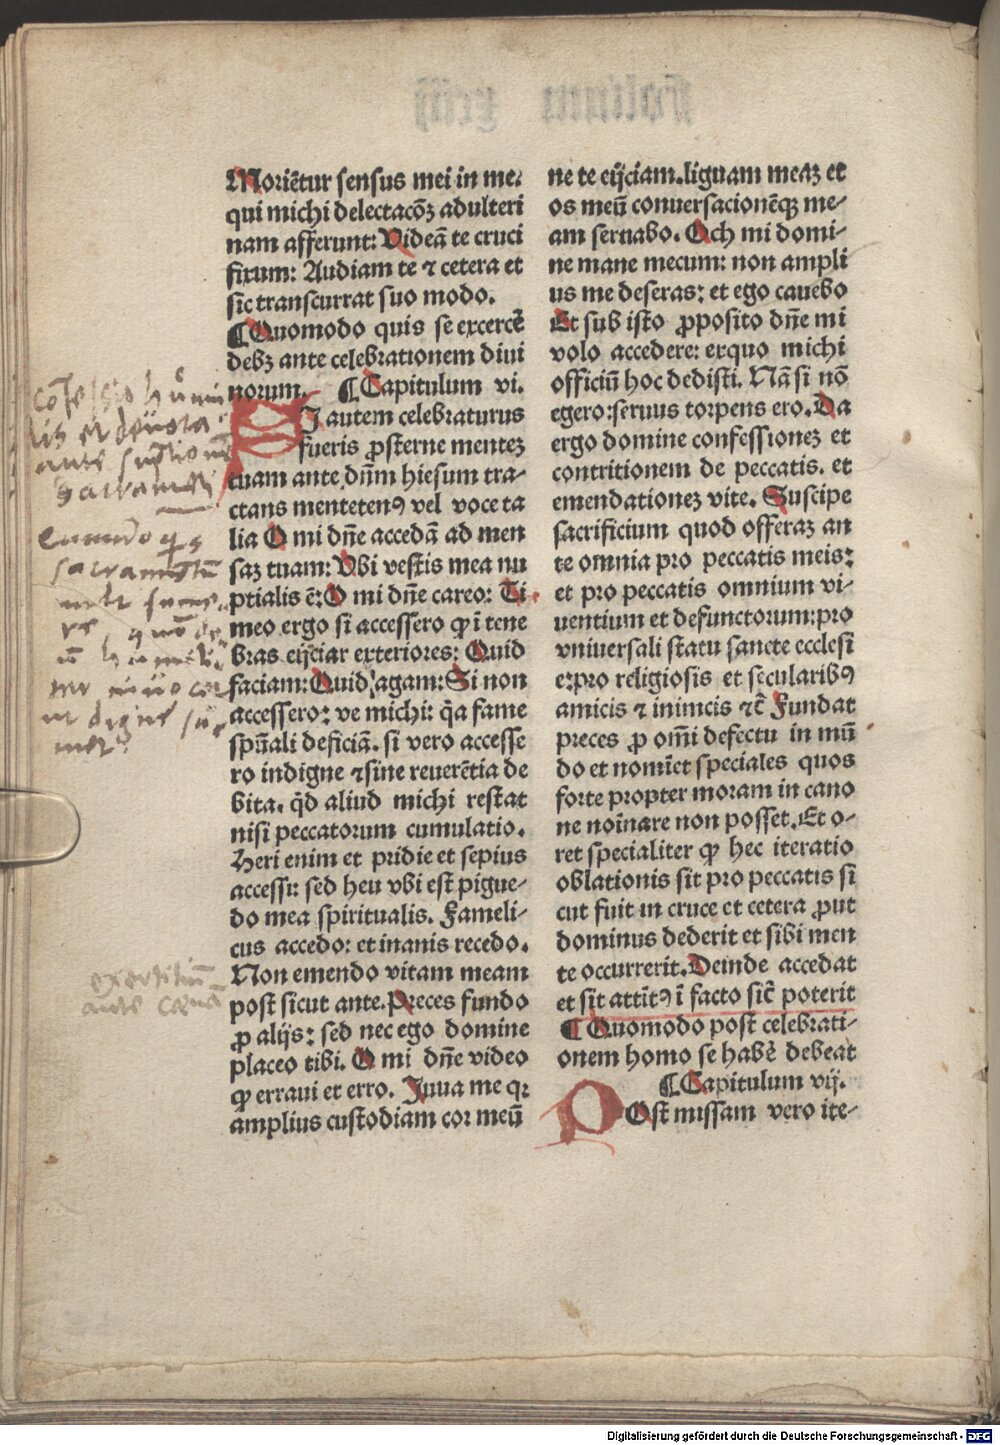 Moriẽtur sensus mei in me.
qui michi delectacõꝫ adulteri
nam afferunt: Videã te cruci
fixum: Audiam te ⁊ cetera et
sic transcurrat suo modo.
¶ Quomodo quis se excercẽ
debꝫ ante celebrationem diui
norum. ¶ Capitulum vi.
SI autem celebraturus
fueris ꝓsterne menteꝫ
tuam ante dñm hiesum tra-
ctans mentetenꝰ vel voce ta
lia O mi dñe accedã ad men
saꝫ tuam: Vbi vestis mea nu
ptialis ẽ: O mi dñe careo: Ti
meo ergo si accessero ꝙ ĩ tene
bras eijciar exteriores: Quid
faciam: Quid agam: Si non
accessero: ve michi: q̃a fame
spũali deficiã. si vero accesse
ro indigne ⁊ sine reuerẽtia de
bita. q̃d aliud michi restat
nisi peccatorum cumulatio.
Heri enim et pridie et sepius
accessi: sed heu vbi est pigue-
do mea spiritualis. Fameli-
cus accedo: et inanis recedo.
Non emendo vitam meam
post sicut ante. Preces fundo
ꝓ alijs: sed nec ego domine
placeo tibi. O mi dñe video
ꝙ erraui et erro. Iuua me qꝛ
amplius custodiam cor meũ
ne te eijciam. liguam meaꝫ et
os meũ conuersacionẽqꝫ me-
am seruabo. Och mi domi-
ne mane mecum: non ampli
us me deseras: et ego cauebo
Et sub isto ꝓposito dñe mi
volo accedere: exquo michi
officiũ hoc dedisti. Nã si nõ
egero: seruus torpens ero. Da
ergo domine confessioneꝫ et
contritionem de peccatis. et
emendationeꝫ vite. Suscipe
sacrificium quod offeraꝫ an
te omnia pro peccatis meis:
et pro peccatis omnium vi-
uentium et defunctorum: pro
vniuersali statu sancte ecclesi
e: pro religiosis et secularibꝰ
amicis ⁊ inimcis ⁊c̃ Fundat
preces ꝓ om̃i defectu in mũ
do et nomĩet speciales quos
forte propter moram in cano
ne noĩnare non posset. Et o-
ret specialiter ꝙ hec iteratio
oblationis sit pro peccatis si
cut fuit in cruce et cetera ꝓut
dominus dederit et sibi men
te occurrerit. Deinde accedat
et sit attẽtꝰ ĩ facto sic̃ poterit
¶ Quomodo post celebrati-
onem homo se habẽ debeat
¶ Capitulum vij.
POst missam vero ite-
exercitiũ
ante cenã
Digitalisierung gefördert durch die Deutsche Forschungsgemeinschaft - DFG